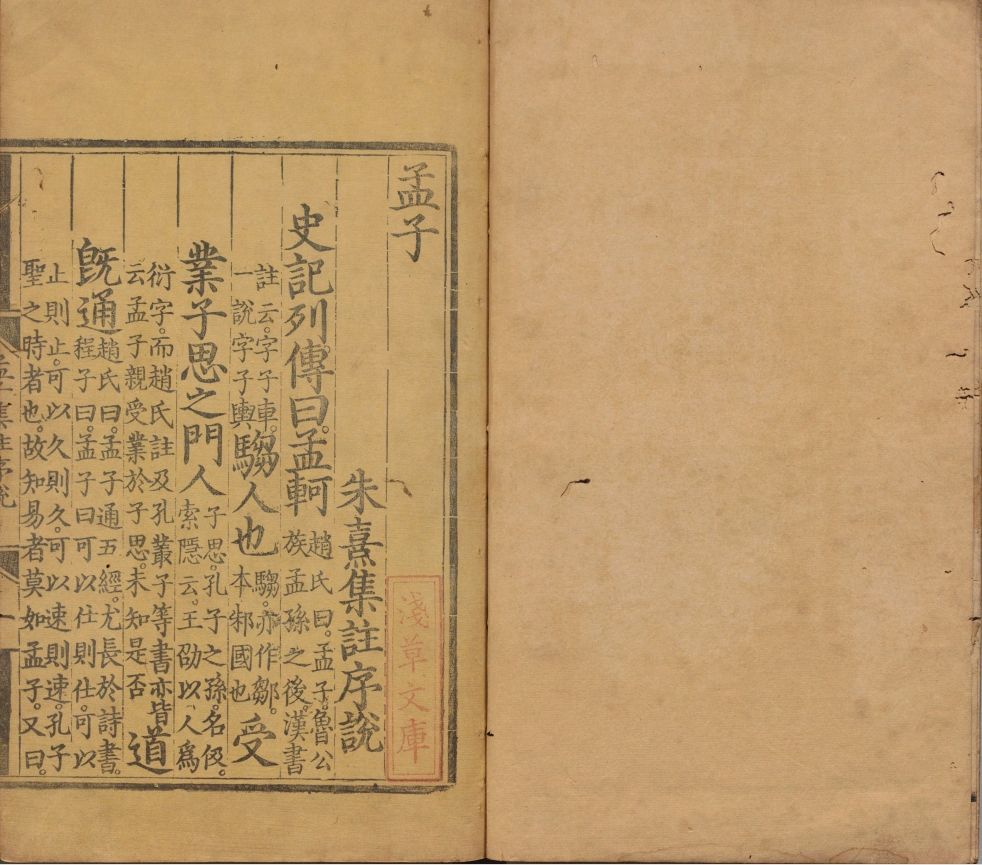 孟子
淺草文庫
朱熹集註序說
史記列傳曰。孟軻
趙氏曰。孟子。魯公
族孟孫之後。漢書
註云。字子車。
一說字子輿
騶人也
騶。亦作鄒。
本邾國也
受
業子思之門人
子思。孔子之孫。名伋。
索隱云。王劭以人爲
衍字。而趙氏註及孔叢子等書亦皆
云孟子親受業於子思。未知是否
道
旣通
趙氏曰。孟子通五經。尤長於詩書。
程子曰。孟子曰可以仕則仕。可以
止則止。可以久則久。可以速則速。孔子
聖之時者也。故知易者莫如孟子。又曰。